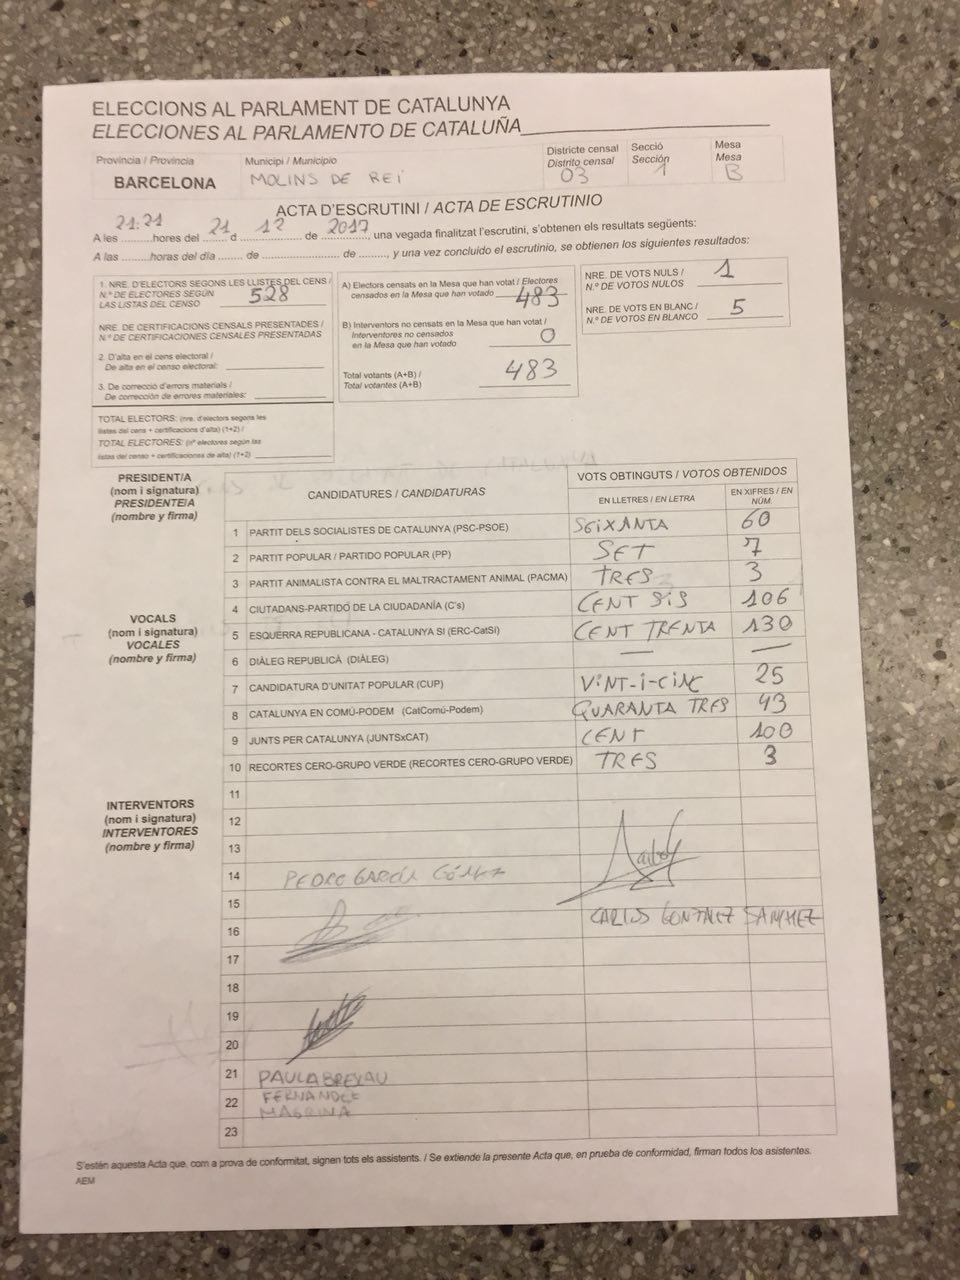 ELECCIONS AL PARLAMENT DE CATALUNYA
ELECCIONES AL PARLAMENTO DE CATALUÑA
Província / Provincia
BARCELONA
Municipi / Municipio
MOLINS DE REI
Districte censal
Distrito censal
03
Secció
Sección
1
Mesa
Mesa
B
ACTA D'ESCRUTINI / ACTA DE ESCRUTINIO
A les 21:21 hores del 21 d 12 de 2017, una vegada finalitzat l'escrutini, s'obtenen els resultats següents:
A las .........horas del día ....... de ............................ de ........, y una vez concluido el escrutinio, se obtienen los siguientes resultados:
1. NRE. D'ELECTORS SEGONS LES LLISTES DEL CENS /
N.º DE ELECTORES SEGÚN
LAS LISTAS DEL CENSO 528
NRE. DE CERTIFICACIONS CENSALS PRESENTADES /
N.º DE CERTIFICACIONES CENSALES PRESENTADAS
2. D'alta en el cens electoral /
De alta en el censo electoral:
3. De correcció d'errors materials /
De corrección de errores materiales:
TOTAL ELECTORS: (nre. d'electors segons les
llistes del cens + certificacions d'alta) (1+2) /
TOTAL ELECTORES: (nº electores según las
listas del censo + certificaciones de alta) (1+2)
A) Electors censats en la Mesa que han votat / Electores
censados en la Mesa que han votado 483
B) Interventors no censats en la Mesa que han votat /
Interventores no censados
en la Mesa que han votado 0
Total votants (A+B) /
Total votantes (A+B) 483
NRE. DE VOTS NULS /
N.º DE VOTOS NULOS 1
NRE. DE VOTS EN BLANC /
N.º DE VOTOS EN BLANCO 5
PRESIDENT/A
(nom i signatura)
PRESIDENTE/A
(nombre y firma)
CANDIDATURES / CANDIDATURAS
VOTS OBTINGUTS / VOTOS OBTENIDOS
EN LLETRES / EN LETRA
EN XIFRES / EN NÚM.
1 PARTIT DELS SOCIALISTES DE CATALUNYA (PSC-PSOE) SEIXANTA 60
2 PARTIT POPULAR / PARTIDO POPULAR (PP) SET 7
3 PARTIT ANIMALISTA CONTRA EL MALTRACTAMENT ANIMAL (PACMA) TRES 3
4 CIUTADANS-PARTIDO DE LA CIUDADANÍA (C's) CENT SIS 106
5 ESQUERRA REPUBLICANA - CATALUNYA SÍ (ERC-CatSí) CENT TRENTA 130
6 DIÀLEG REPUBLICÀ (DIÀLEG) — —
7 CANDIDATURA D'UNITAT POPULAR (CUP) VINT-I-CINC 25
8 CATALUNYA EN COMÚ-PODEM (CatComú-Podem) QUARANTA TRES 43
9 JUNTS PER CATALUNYA (JUNTSxCAT) CENT 100
10 RECORTES CERO-GRUPO VERDE (RECORTES CERO-GRUPO VERDE) TRES 3
VOCALS
(nom i signatura)
VOCALES
(nombre y firma)
INTERVENTORS
(nom i signatura)
INTERVENTORES
(nombre y firma)
11
12
13
14 PEDRO GARCÍA GÓMEZ
15
16 CARLOS GONZALEZ SANCHEZ
17
18
19
20
21 PAULA
22 FERNANDEZ
23
S'estén aquesta Acta que, com a prova de conformitat, signen tots els assistents. / Se extiende la presente Acta que, en prueba de conformidad, firman todos los asistentes.
AEM